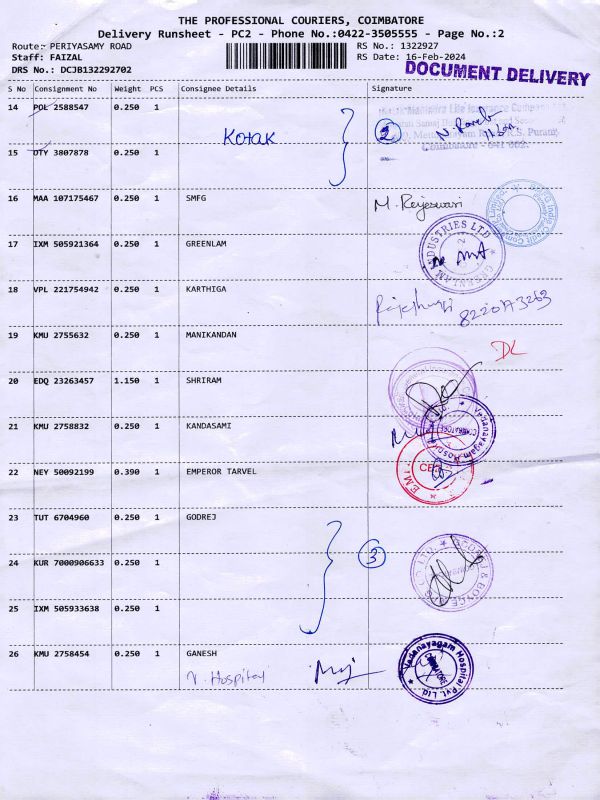 THE PROFESSIONAL COURIERS, COIMBATORE
Delivery Runsheet - PC2 - Phone No.:0422-3505555 - Page No.:2
Route: PERIYASAMY ROAD RS No.: 1322927
Staff: FAIZAL RS Date: 16-Feb-2024
DRS No.: DCJB132292702 DOCUMENT DELIVERY
S No Consignment No Weight PCS Consignee Details Signature
14 POL 2588547 0.250 1
Kotak 2
15 DTY 3807878 0.250 1
16 MAA 107175467 0.250 1 SMFG M. Rajeswari
17 IXM 505921364 0.250 1 GREENLAM
GREENLAM INDUSTRIES LTD
18 VPL 221754942 0.250 1 KARTHIGA
19 KMU 2755632 0.250 1 MANIKANDAN DL
20 EDQ 23263457 1.150 1 SHRIRAM
21 KMU 2758832 0.250 1 KANDASAMI
Vedanayagam Hospital
COIMBATORE
22 NEY 50092199 0.390 1 EMPEROR TARVEL
23 TUT 6704960 0.250 1 GODREJ
24 KUR 7000906633 0.250 1 3
GODREJ & BOYCE
25 IXM 505933638 0.250 1
26 KMU 2758454 0.250 1 GANESH
V. Hospital
Vedanayagam Hospital Pvt. Ltd.
COIMBATORE